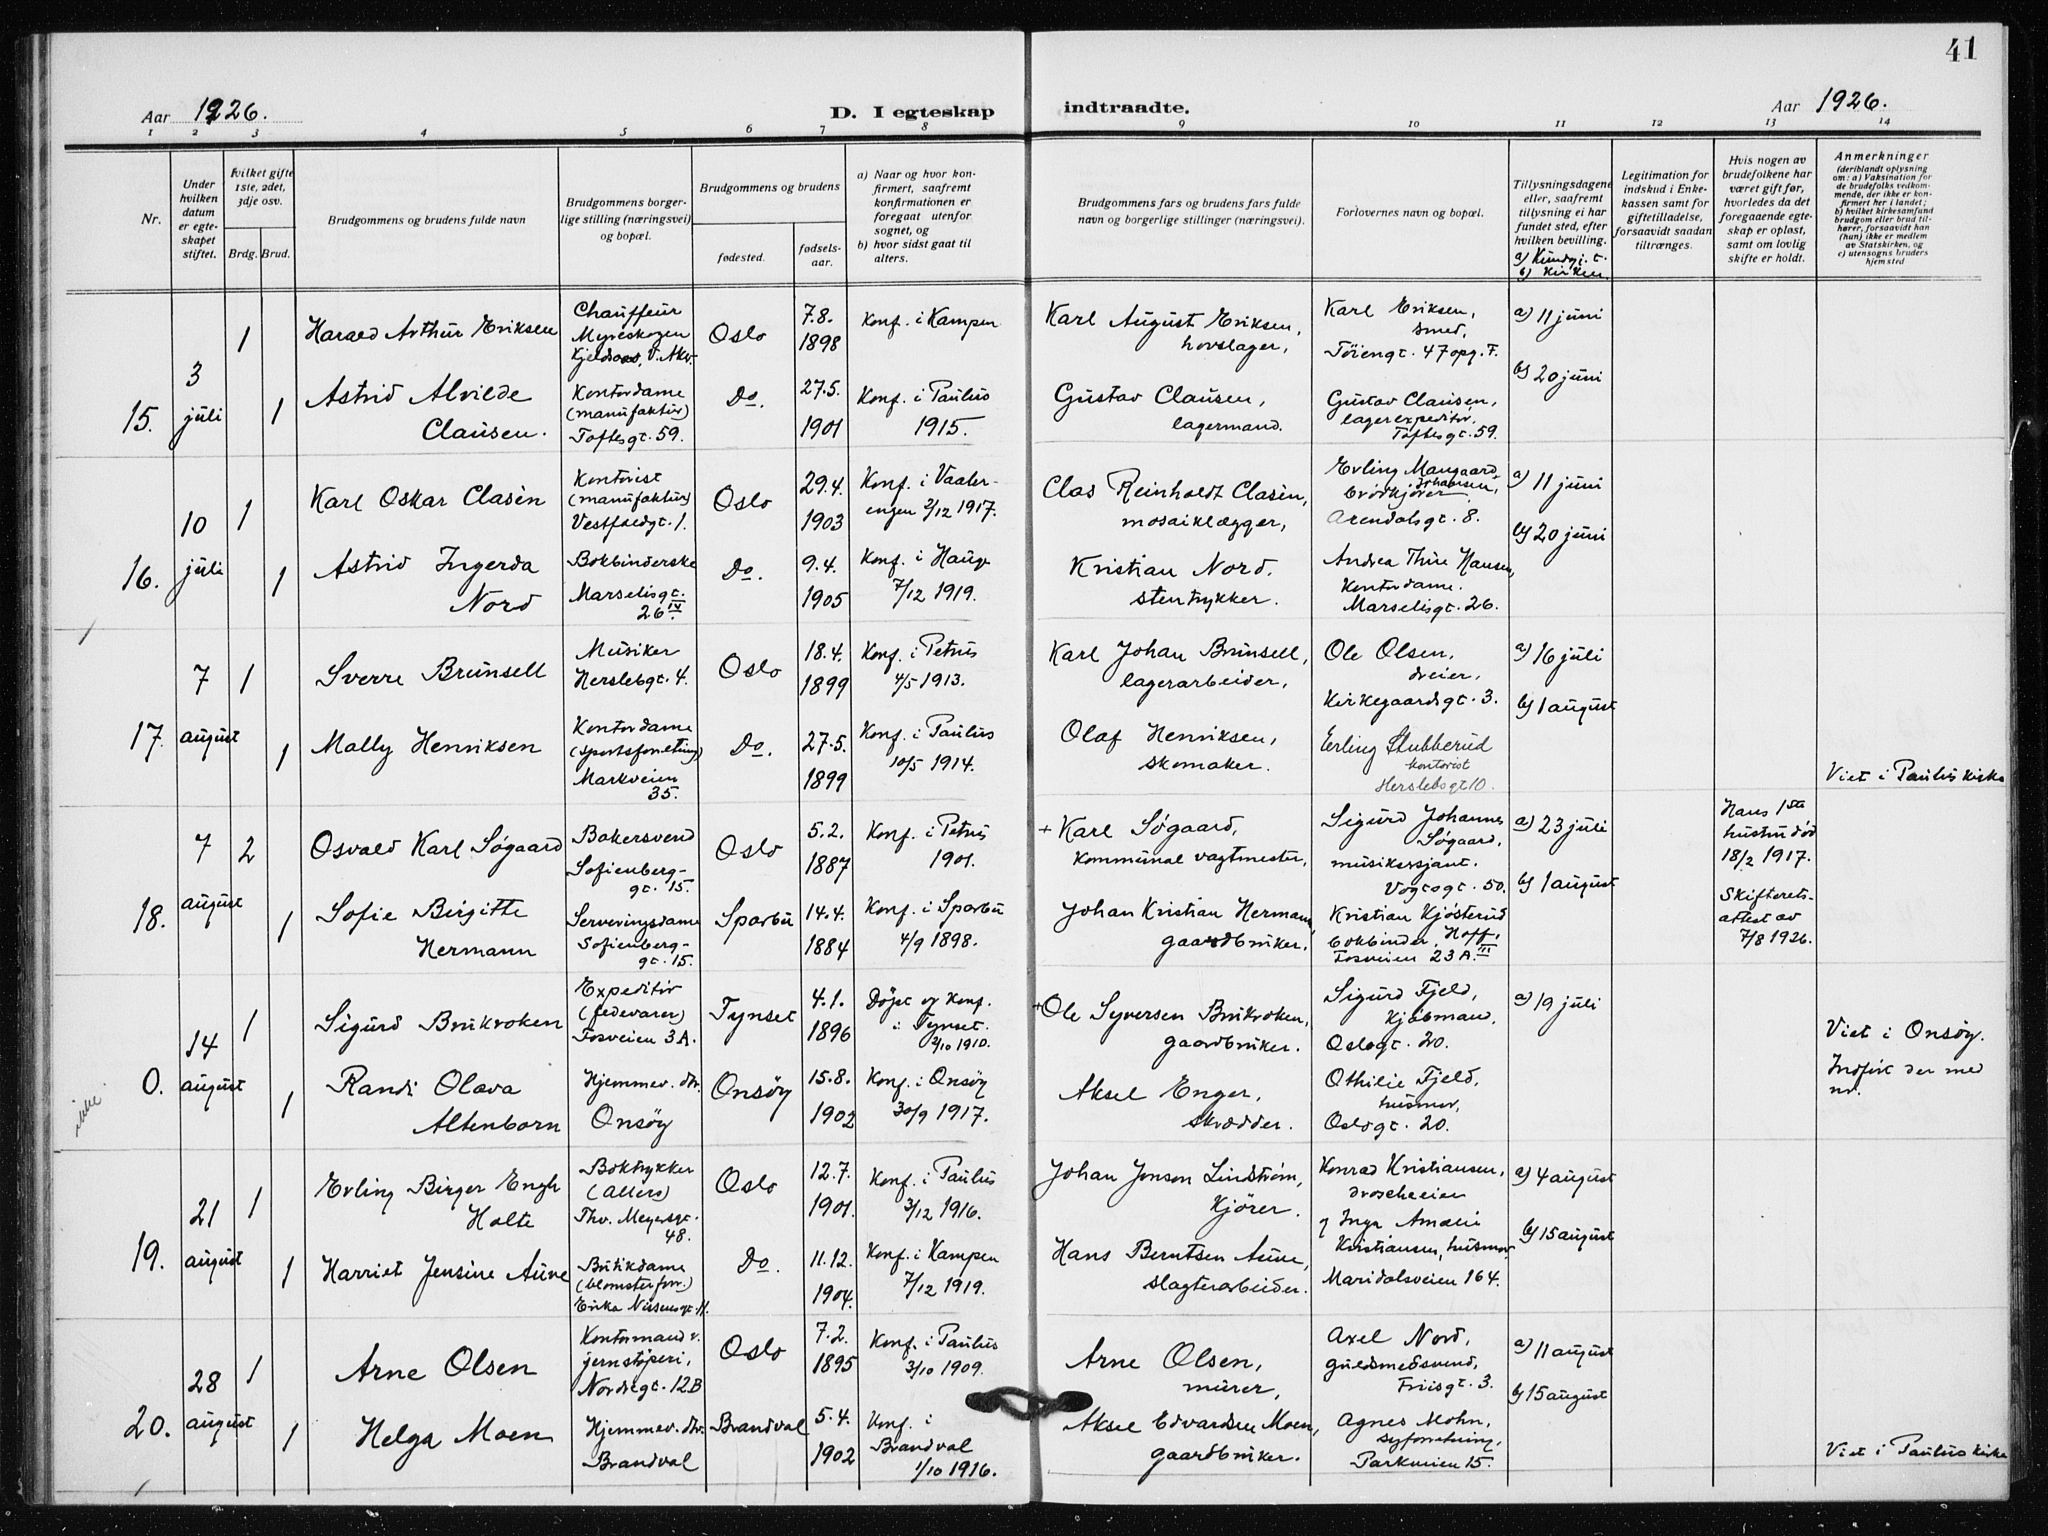 41
Aar 1926.
D. I egteskap indtraadte.
Aar 1926.
1 2 3 4 5 6 7 8 9 10 11 12 13 14
Nr.
Under hvilken datum er egteskapet stiftet.
Hvilket gifte 1ste, 2det, 3dje osv.
Brdg. Brud.
Brudgommens og brudens fulde navn
Brudgommens borgerlige stilling (næringsvei) og bopæl.
Brudgommens og brudens
fødested.
fødselsaar.
a) Naar og hvor konfirmert, saafremt konfirmationen er foregaat utenfor sognet, og
b) hvor sidst gaat til alters.
Brudgommens fars og brudens fars fulde navn og borgerlige stillinger (næringsvei).
Forlovernes navn og bopæl.
Tillysningsdagene eller, saafremt tillysning ei har fundet sted, efter hvilken bevilling.
b) Kirken.
Legitimation for indskud i Enkekassen samt for giftetilladelse, forsaavidt saadan tiltrænges.
Hvis nogen av brudefolkene har været gift før, hvorledes da det foregaaende egteskap er opløst, samt om lovlig skifte er holdt.
Anmerkninger
(deriblandt oplysning om: a) Vaksination for de brudefolks vedkommende, der ikke er konfirmert her i landet; b) hvilket kirkesamfund brudgom eller brud tilhører, forsaavidt han (hun) ikke er medlem av Statskirken, og c) utensogns bruders hjemsted
15.
3 juli
1
Harald Arthur Eriksen
Chauffeur
Myreskogen
Kjelsaas, V. Aker.
Oslo
7.8.
1898
Konf. i Kampen
Karl August Eriksen,
hovslager,
Karl Eriksen,
smed,
Tøiengt. 47 opg. F.
a) 11 juni
b) 20 juni
1
Astrid Alvilde
Clausen.
Kontordame
(manufaktur)
Toftesgt. 59.
Do.
27.5.
1901
Konf. i Paulus
1915.
Gustav Clausen,
lagermand.
Gustav Clausen,
lagerexpeditør,
Toftesgt. 59.
16.
10 juli
1
Karl Oskar Clasèn
Kontorist
(manufaktur)
Vestfoldgt. 1.
Oslo
29.4.
1903
Konf. i Vaaler-
engen 2/12 1917.
Clas Reinholdt Clasèn,
mosaiklægger,
Erling Mangaard
Johansen,
brødkjører
Arendalsgt. 8.
a) 11 juni
b) 20 juni
1
Astrid Ingerda
Nord
Bokbinderske
Marselisgt.
26 IV
Do.
9.4.
1905
Konf. i Hauge
7/12 1919.
Kristian Nord.
stentrykker.
Andrea Thire Hansen,
Kontordame.
Marselisgt. 26.
17.
7 august
1
Sverre Brunsell
Musiker
Herslebgt. 4.
Oslo
18.4.
1899
Konf. i Petrus
4/5 1913.
Karl Johan Brunsell,
lagerarbeider,
Ole Olsen,
dreier,
Kirkegaardsgt. 3.
a) 16 juli
b) 1 august
1
Mally Henriksen
Kontordame
(sportsforretning)
Markveien
35.
Do.
27.5.
1899
Konf. i Paulus
10/5 1914.
Olaf Henriksen,
skomaker.
Erling Stubberud
kontorist
Herslebsgt 10.
Viet i Paulus kirke
18.
7 august
2
Osvald Karl Søgaard
Bakersvend
Sofienberg-
gt. 15.
Oslo
5.2.
1887
Konf. i Petrus
1901.
+ Karl Søgaard,
Kommunal vagtmester,
Sigurd Johannes
Søgaard,
musikersjant.
Vogtsgt. 50.
a) 23 juli
b) 1 august
Hans 1ste
hustru død
18/2 1917.
Skifterets-
attest av
7/8 1926.
1
Sofie Birgitte
Hermann
Serveringsdame
Sofienberg-
gt. 15.
Sparbu
14.4.
1884
Konf. i Sparbu
4/9 1898.
Johan Kristian Hermann,
gaardbruker,
Kristian Kjøsterud
bokbinder, Hoff,
Fosveien 23 A. III
ikke
0.
14 august
1
Sigurd Brukroken
Expeditør
(fedevarer)
Fosveien 3A.
Tynset
4.1.
1896
Døpt og konf.
i Tynset.
2/10 1910.
+ Ole Syversen Brukroken,
gaardbruker.
Sigurd Fjeld,
Kjøbmand,
Oslogt. 20.
a) 19 juli
Viet i Onsøy.
Indført der med
nr.
1
Randi Olava
Altenborn
Hjemmev. dtr.
Onsøy
Onsøy
15.8.
1902
Konf. i Onsøy
30/9 1917.
Aksel Enger,
skrædder.
Othilie Fjeld,
husmor,
Oslogt. 20.
19.
21 august
1
Erling Birger Engh
Holte
Boktrykker
(Allers)
Thv. Meyersgt.
48.
Oslo
12.7.
1901.
Konf. i Paulus
3/12 1916.
Johan Jonson Lindstrøm,
Kjører.
Konrad Kristiansen,
droscheeier
a) 4 august
b) 15 august
1
Harriet Jensine Aune
Butikdame
(blomsterforr.)
Erika Nissensgt. 11.
Do.
11.12.
1904.
Konf. i Kampen
7/12 1919.
Hans Berntsen Aune,
slagterarbeider.
og Inga Amalie
Kristiansen, husmor.
Maridalsveien 164.
20.
28 august
1
Arne Olsen
Kontormand v.
jernstøperi,
Nordregt. 12B
Oslo
7.2.
1895
Konf. i Paulus
3/10 1909.
Arne Olsen,
murer,
Axel Nord,
guldsmedsvend,
Friisgt. 3.
a) 11 august
b) 15 august
1
Helga Moen
Hjemmev. dtr.
Brandval
Brandval
5.4.
1902
Konf. i
Brandval
1/10 1916.
Aksel Edvardsen Moen,
gaardbruker.
Agnes Mohn,
syforretning,
Parkveien 15.
Viet i Paulus kirke